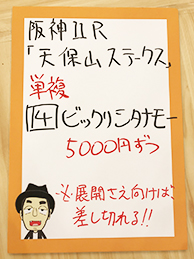 阪神11R
「天保山ステークス」
単複
14ビックリシタナモー
5000円ずつ
展開さえ向けば、
差し切れる!!